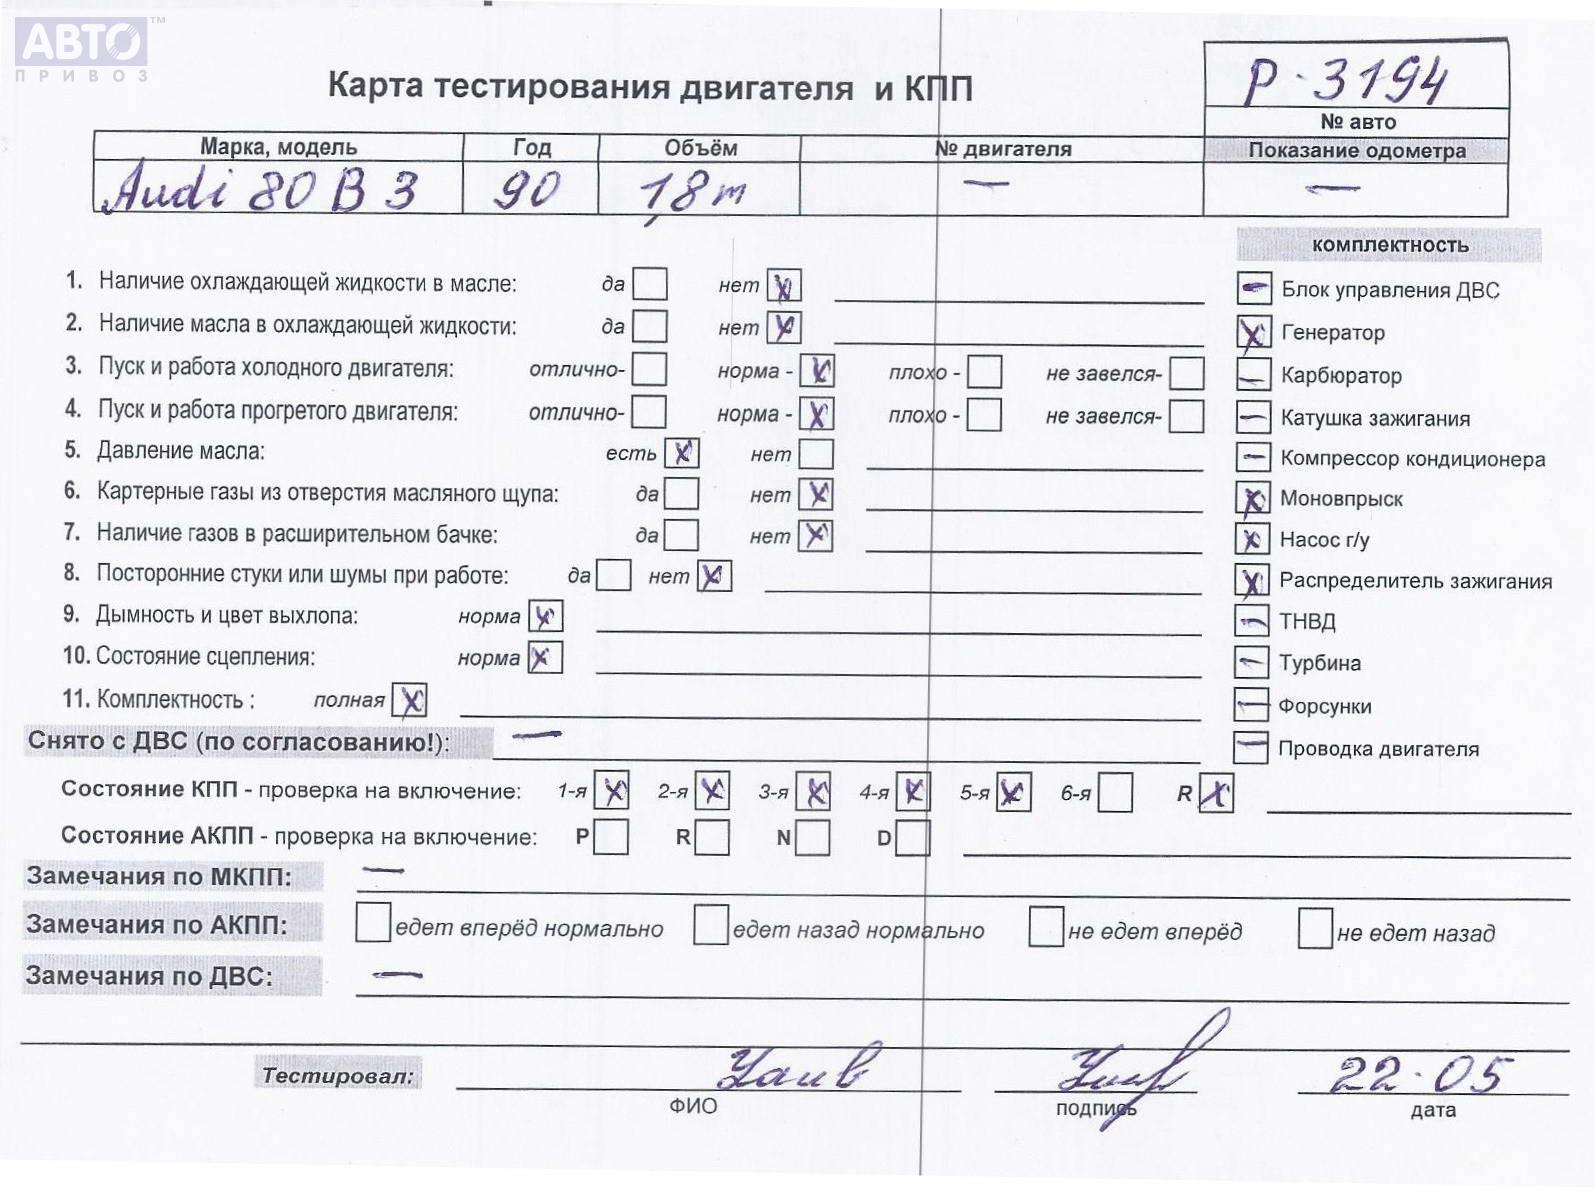 АВТО™
ПРИВОЗ
Р-3194
Карта тестирования двигателя и КПП
№ авто
Марка, модель Год Объём № двигателя Показание одометра
Audi 80 B3 90 1,8m — —
комплектность
1. Наличие охлаждающей жидкости в масле: да нет X
2. Наличие масла в охлаждающей жидкости: да нет X
3. Пуск и работа холодного двигателя: отлично- норма - X плохо - не завелся-
4. Пуск и работа прогретого двигателя: отлично- норма - X плохо - не завелся-
5. Давление масла: есть X нет
6. Картерные газы из отверстия масляного щупа: да нет X
7. Наличие газов в расширительном бачке: да нет X
8. Посторонние стуки или шумы при работе: да нет X
9. Дымность и цвет выхлопа: норма X
10. Состояние сцепления: норма X
11. Комплектность : полная X
— Блок управления ДВС
X Генератор
— Карбюратор
— Катушка зажигания
— Компрессор кондиционера
X Моновпрыск
X Насос г/у
X Распределитель зажигания
— ТНВД
— Турбина
— Форсунки
— Проводка двигателя
Снято с ДВС (по согласованию!): —
Состояние КПП - проверка на включение: 1-я X 2-я X 3-я X 4-я X 5-я X 6-я R X
Состояние АКПП - проверка на включение: P R N D
Замечания по МКПП: —
Замечания по АКПП: едет вперёд нормально едет назад нормально не едет вперёд не едет назад
Замечания по ДВС: —
Тестировал: 22.05
ФИО подпись дата